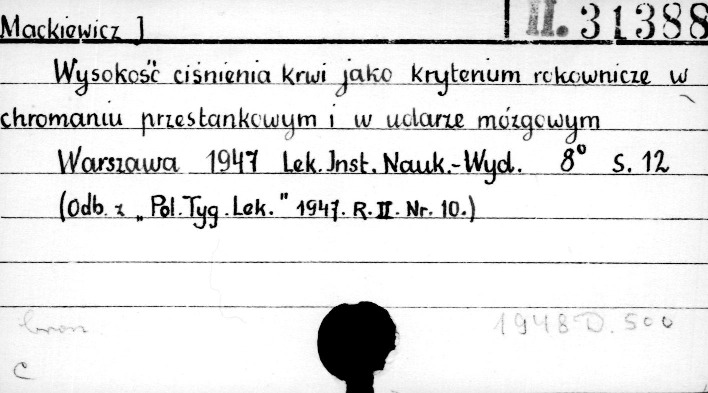 Mackiewicz J
II. 31388
Wysokość ciśnienia krwi jako kryterium rokownicze w
chromaniu przestankowym i w udarze mózgowym
Warszawa 1947 Lek. Inst. Nauk.-Wyd. 8° S. 12
(Odb. z „Pol. Tyg. Lek." 1947. R. II. Nr. 10.)
bron
1948 D. 500
C